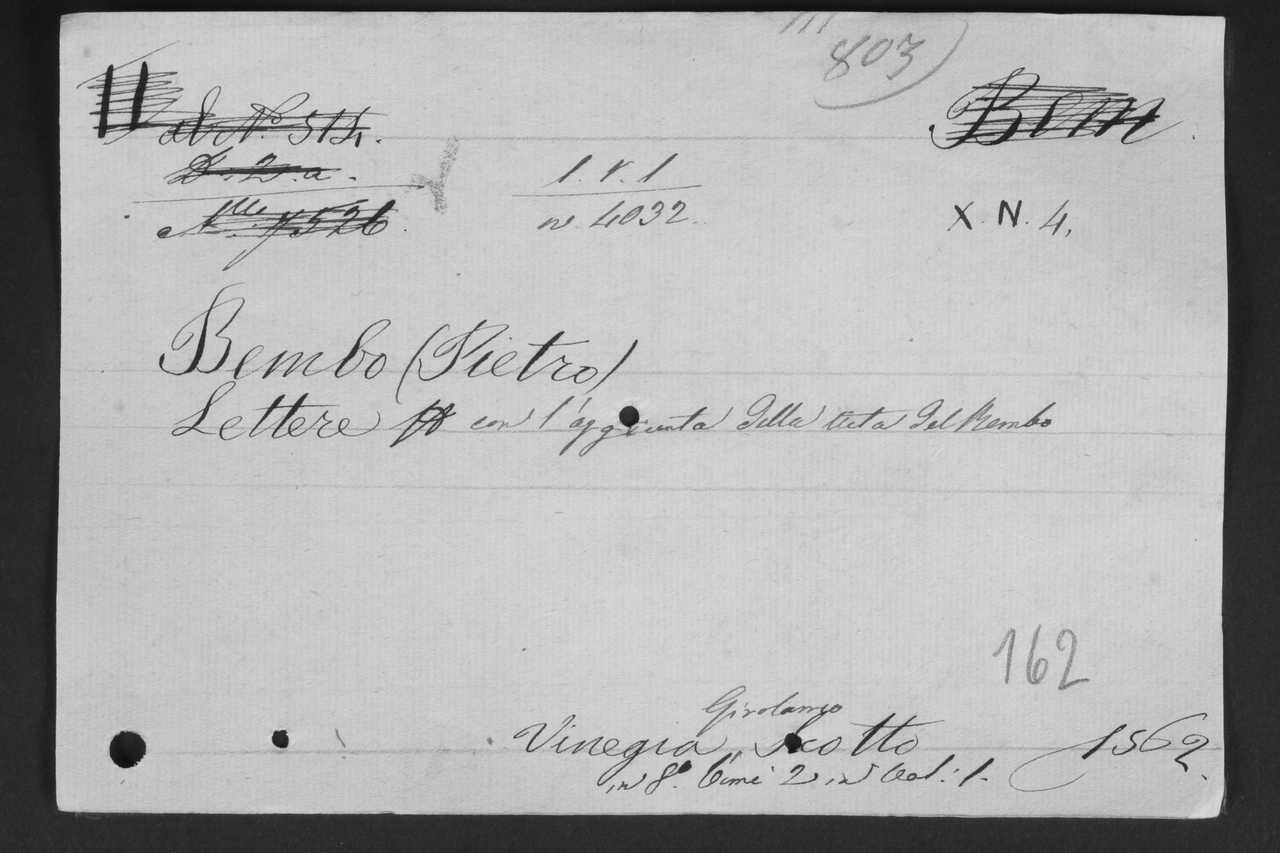 803)
ab N.º 514.
Bem
D. 2. a.
1. V. 1
n. 4032.
X. N. 4.
Bembo (Pietro)
Lettere con l'aggiunta della vita del Bembo
162
Girolamo
Vinegia, Scotto 1562.
in 8.º tomi 2 in vol: 1.